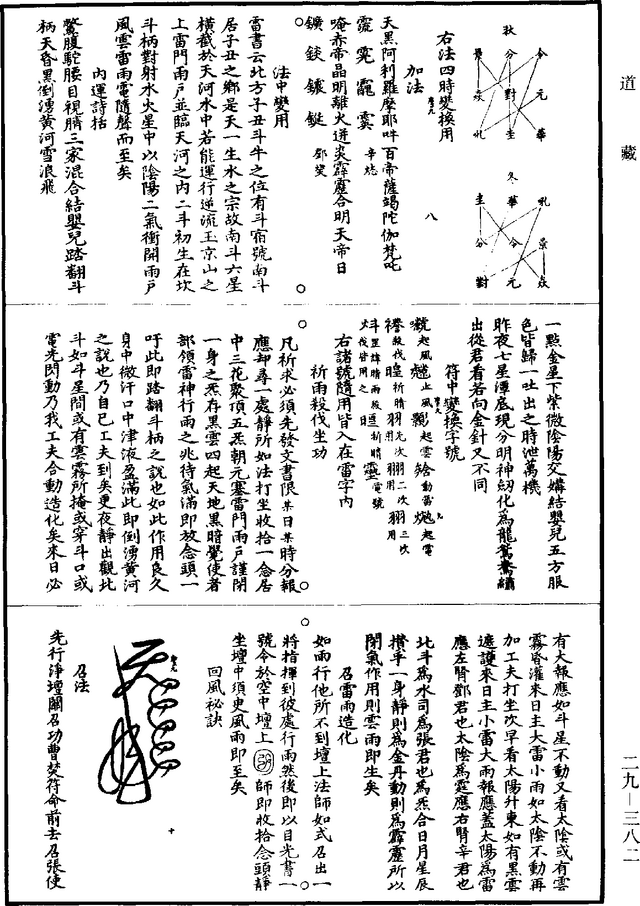 道藏
秋
令 元 華
分 對 圭
景 焱 吼
冬
吼 景 焱
華 令 元
圭 分 對
右法四時變換用
加法
八
天黑阿利羅摩耶吽百帝薩竭陀伽梵吒
辛 熖
唵赤帝晶明離火迸炎霹靂合明天帝日
鄧 燮
法中變用
雷書云此方子丑斗牛之位有斗宿號南斗
居子丑之鄉是天一生水之宗故南斗六星
橫截於天河水中若能運行逆流玉京山之
上雷門雨戶並臨天河之內二斗初生在坎
斗柄對射水火星中以陰陽二氣衝開雨戶
風雲雷雨電隨聲而至矣
內運詩括
鱉腹駝腰目視臍三家混合結嬰兒踏翻斗
柄天昏黑倒湧黃河雪浪飛
一點金星下紫微陰陽交媾結嬰兒五方服
色皆歸一吐出之時泄萬機
昨夜七星潭底現分明神劒化為龍鴛鴦繡
出從君看若向金針又不同
符中變換字號
右諸號隨用皆入在雷字內
祈雨殺伐坐功
凡祈求必須先發文書限某日某時分報
應却尋一處靜所如法打坐收拾一念居
中三花聚頂五炁朝元塞雷門雨戶謹閉
一身之炁存黑雲四起天地黑暗覺使者
部領雷神行雨之兆待氣滿即放念頭一
吁此即踏翻斗柄之說也如此作用良久
身中微汗口中津液盈滿此即倒湧黃河
之說也乃自己工夫到矣更夜靜出觀北
斗如斗星間或有雲霧所掩或穿斗口或
電光閃動乃我工夫合動造化矣來日必
有大報應如斗星不動又看太陰或有雲
霧昏濛來日主大雷小雨如太陰不動再
加工夫打坐次早看太陽升東如有黑雲
遮護來日主小雷大雨報應蓋太陽為雷
應左腎鄧君也太陰為霆應右腎辛君也
北斗為水司為張君也為炁合日月星辰
攢乎一身靜則為金丹動則為霹靂所以
閉氣作用則雲雨即生矣
召雷雨造化
如雨行他所不到壇上法師如式召出一
將指揮到彼處行雨然後即以目光書一
號令於空中壇上 師即收拾念頭靜
坐壇中須臾風雨即至矣
回風祕訣
召法
先行淨壇關召功曹焚符命前去召張使
二九—三八二